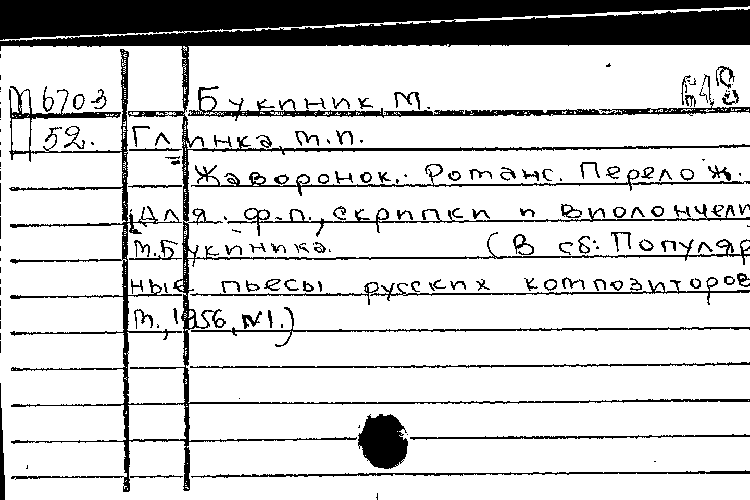 П 6703 Букиник, М. 648
52. Глинка, М.П.
Жаворонок. Романс. Перелож.
для ф.п., скрипки и виолончели
М. Букиника. (В сб: Популяр
ные пьесы русских композиторов
М., 1956, №1.)